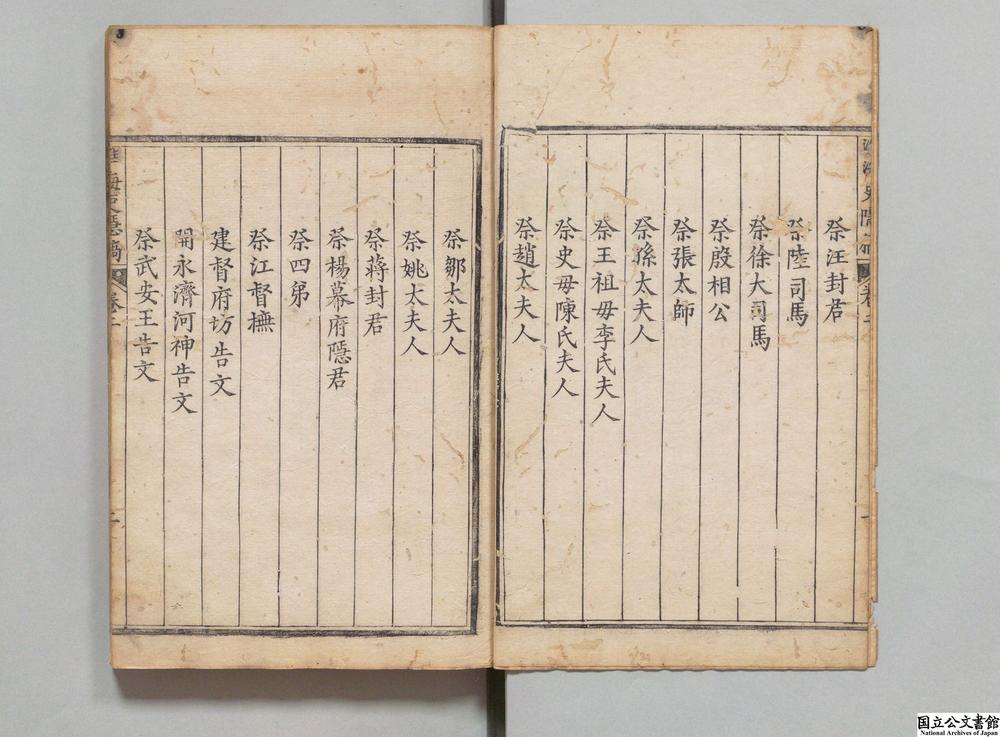 祭汪封君
祭陸司馬
祭徐大司馬
祭殷相公
祭張太師
祭孫太夫人
祭王祖母李氏夫人
祭史母陳氏夫人
祭趙太夫人
祭鄒太夫人
祭姚太夫人
祭蔣封君
祭楊幕府隱君
祭四弟
祭江督橅
建督府坊告文
開永濟河神告文
祭武安王告文
国立公文書館
National Archives of Japan